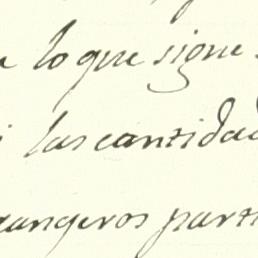 e lo que sigue
i las cantidad
rangeros parti